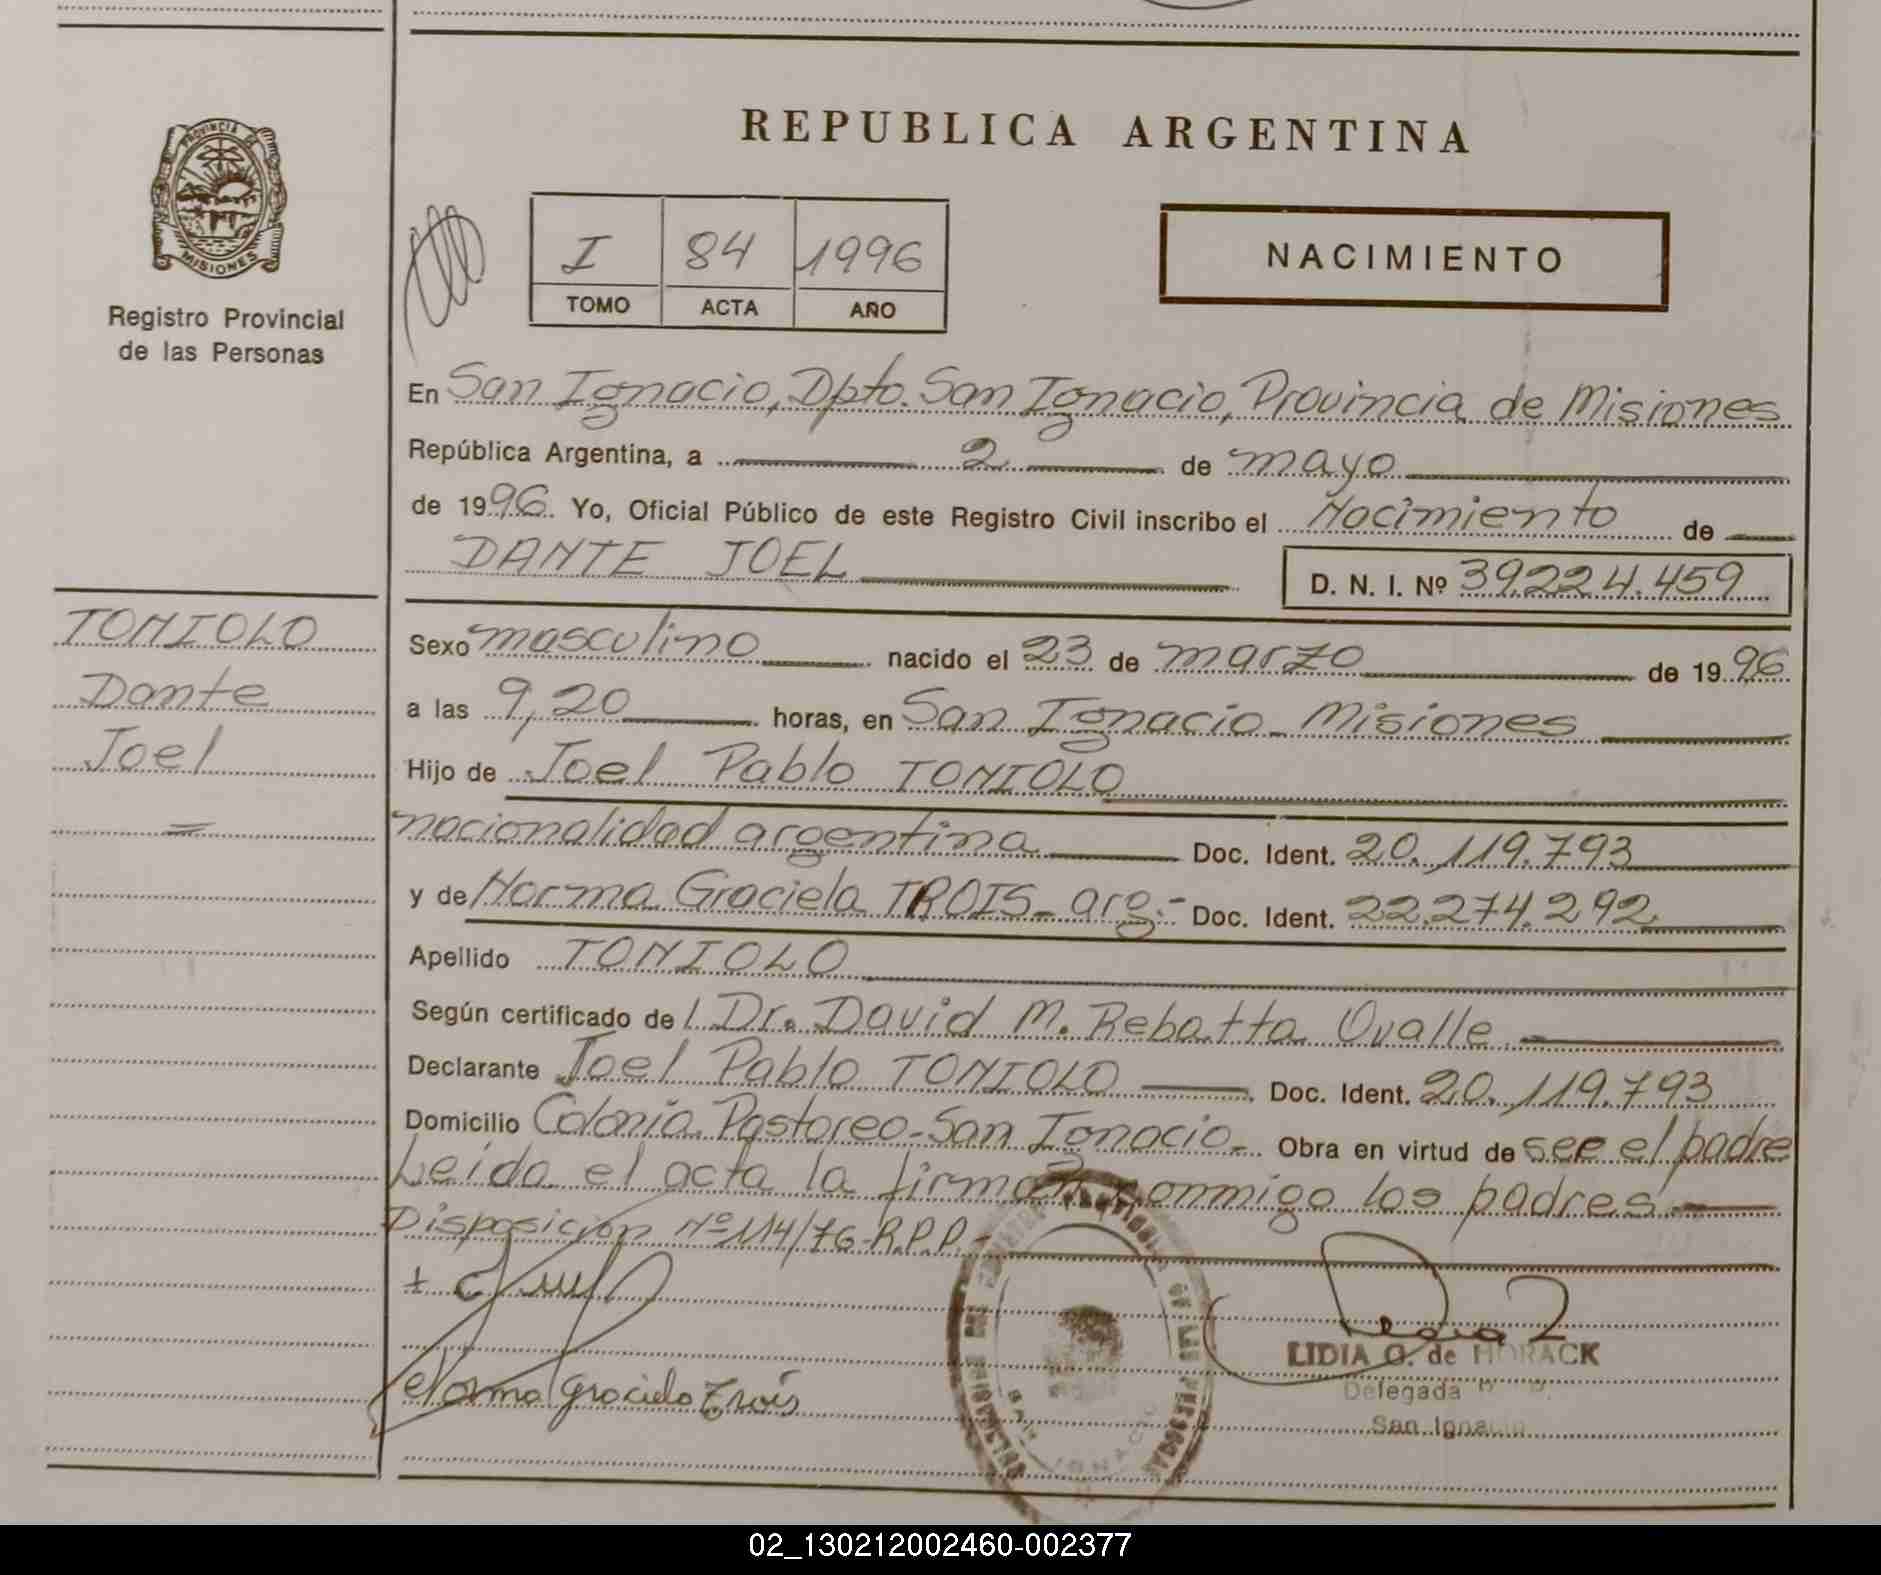 PROVINCIA DE
MISIONES
Registro Provincial
de las Personas
TONIOLO
Dante
Joel
REPUBLICA ARGENTINA
I 84 1996
TOMO ACTA AÑO
NACIMIENTO
En San Ignacio, Dpto. San Ignacio, Provincia de Misiones
República Argentina, a 2 de mayo
de 1996. Yo, Oficial Público de este Registro Civil inscribo el Nacimiento de
DANTE JOEL D. N. I. Nº 39.224.459
Sexo masculino nacido el 23 de marzo de 1996
a las 9,20 horas, en San Ignacio - Misiones
Hijo de Joel Pablo TONIOLO
nacionalidad argentina Doc. Ident. 20.119.793
y de Norma Graciela TROIS - arg.- Doc. Ident. 22.274.292
Apellido TONIOLO
Según certificado de l Dr. David M. Rebatta Ovalle
Declarante Joel Pablo TONIOLO Doc. Ident. 20.119.793
Domicilio Colonia Pastoreo - San Ignacio - Obra en virtud de ser el padre
Leída el acta la firman conmigo los padres
Disposición Nº 114/76-R.P.P.-
Norma Graciela Trois
LIDIA G. de HORACK
Delegada
San Ignacio
02_130212002460-002377